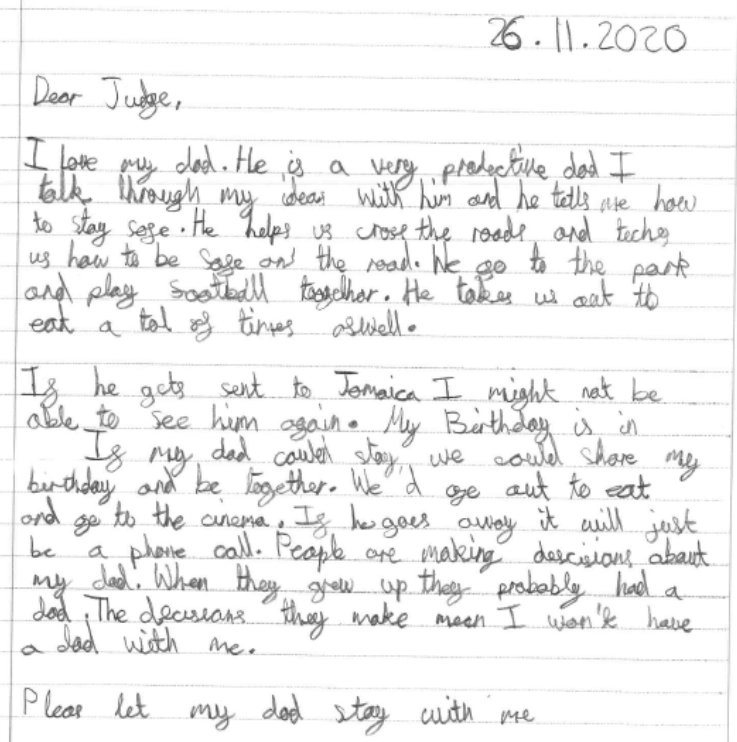 26.11.2020
Dear Judge,
I love my dad. He is a very predective dad I
talk through my ideas with him and he tells me how
to stay safe. He helps us cross the roads and teches
us how to be safe on the road. We go to the park
and play football toogdher. He takes us out to
eat a tol of times aswell.
If he gets sent to Jamaica I might not be
able to see him again. My Birthday is in
If my dad could stay, we could share my
birthday and be together. We'd go out to eat
and go to the cinema. If he goes away it will just
be a phone call. People are making descisions about
my dad. When they grew up they probably had a
dad. The decusions they make mean I won't have
a dad with me.
Pleas let my dad stay with me